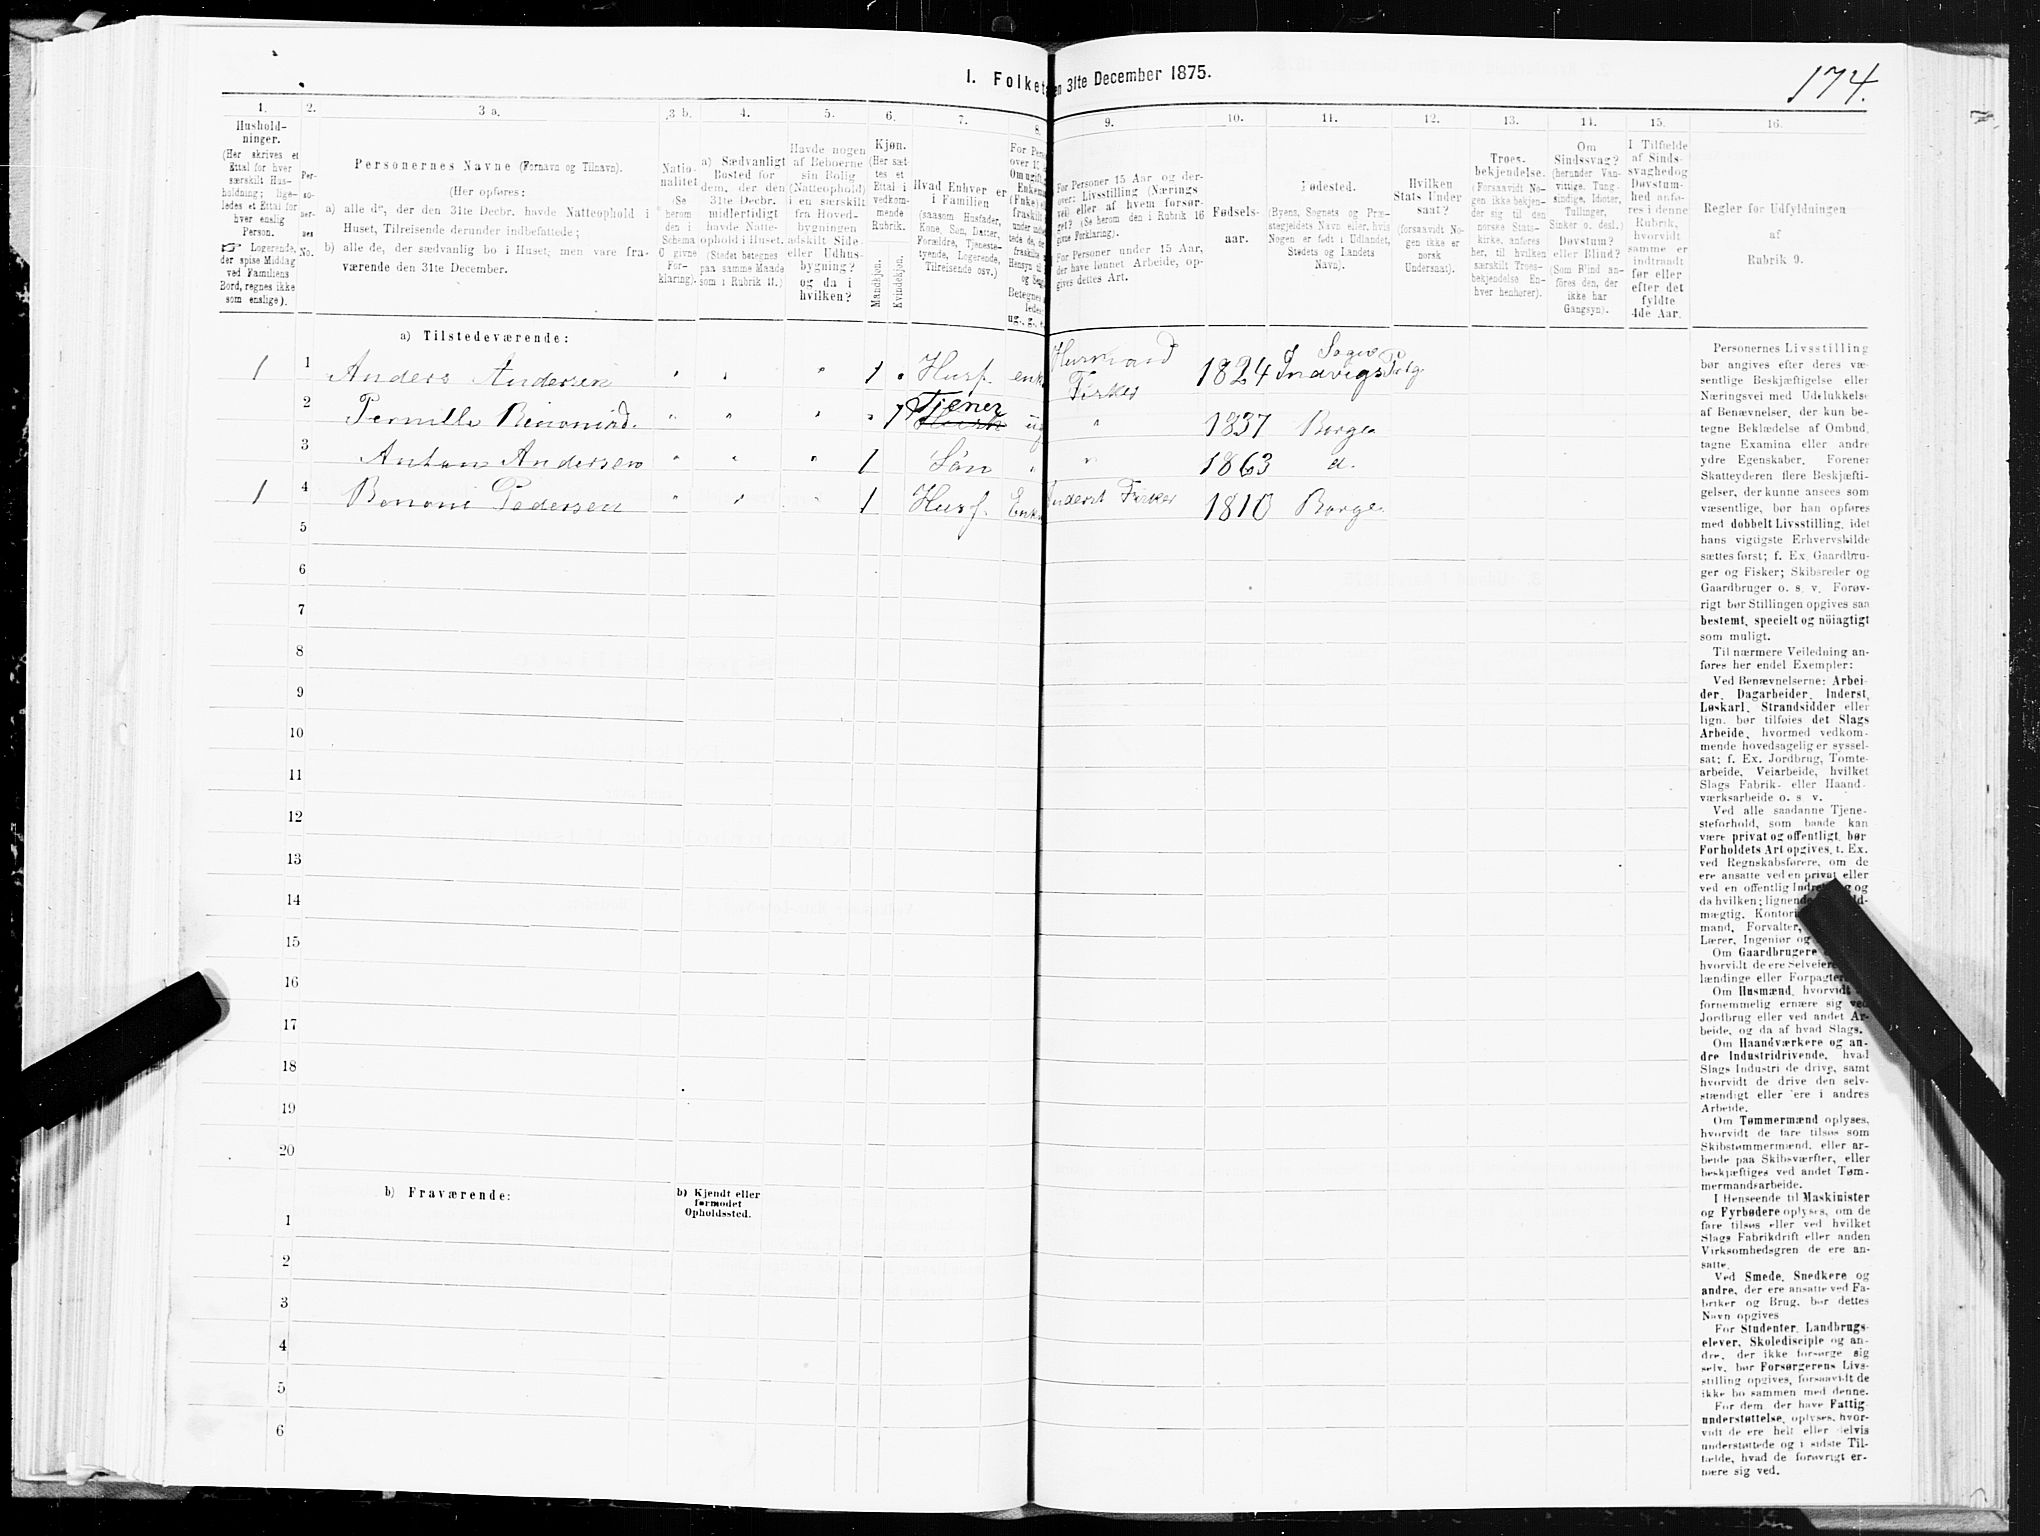 174.
I. Folket
en 31te December 1875.
1.
2.
3 a.
3 b.
4.
5.
6.
7.
8.
9.
10.
11.
12.
13.
14.
15.
16.
Hushold-
ninger.
(Her skrives et
Ettal for hver
særskilt Hus-
holdning; lige-
ledes et Ettal for
hver enslig
Person.
☞ Logerende,
der spise Middag
ved Familiens
Bord, regnes ikke
som enslige).
Per-
so-
ner-
nes
No.
Personernes Navne (Fornavn og Tilnavn).
(Her opføres:
a) alle de, der den 31te Decbr. havde Natteophold i
Huset, Tilreisende derunder indbefattede;
b) alle de, der sædvanlig bo i Huset, men vare fra-
værende den 31te December.
Natio-
nalitet
(Se
herom
den i
Schema
C givne
For-
klaring).
a) Sædvanligt
Bosted for
dem, der den
31te Decbr.
midlertidigt
havde Natte-
ophold i Huset.
(Stedet betegnes
paa samme Maade
som i Rubrik 11.)
Havde nogen
af Beboerne
sin Bolig
(Natteophold)
i en særskilt
fra Hoved-
bygningen
adskilt Side-
eller Udhus-
bygning?
og da i
hvilken?
Kjøn.
(Her sæt-
tes et
Ettal i
vedkom-
mende
Rubrik.
Mandkjøn.
Kvindekjøn.
Hvad Enhver er
i Familien
(saasom Husfader,
Kone, Søn, Datter,
Forældre, Tjeneste-
tyende, Logerende,
Tilreisende osv.)
For Personer 15 Aar og der-
over: Livsstilling (Nærings-
vei) eller af hvem forsør-
get? (Se herom den i Rubrik 16
givne Forklaring).
For Personer under 15 Aar,
der have lønnet Arbeide, op-
gives dettes Art.
Fødsels-
aar.
Fødested.
(Byens, Sognets og Præ-
stegjeldets Navn eller, hvis
Nogen er født i Udlandet,
Stedets og Landets
Navn).
Hvilken
Stats Under-
saat?
(forsaavidt No-
gen ikke er
norsk
Undersaat).
Troes-
bekjendelse.
(Forsaavidt No-
gen ikke bekjen-
der sig til den
norske Stats-
kirke, anføres
her, til hvilken
særskilt Troes-
bekjendelse En-
hver henhører).
Om
Sindssvag?
(herunder Van-
vittige, Tung-
sindige, Idioter,
Tullinger,
Sinker o. desl.)
Døvstum?
eller Blind?
(Som Blind an-
føres den, der
ikke har
Gangsyn).
I Tilfælde
af Sinds-
svaghed og
Døvstum-
hed anfø-
res i denne
Rubrik,
hvorvidt
samme er
indtraadt
før eller
efter det
fyldte
4de Aar.
Regler for Udfyldningen
af
Rubrik 9.
a) Tilstedeværende:
1 1 Anders Andersen " " " 1 " Husf. enk Husmand Fisker 1824 Indvigs Sogn
2 Pernille " " " " 1 Tjener ug " 1837 Borge
3 Anton Andersen " " " 1 Søn " " 1863 d.
1 4 Benoni Pedersen " " " 1 Husf. Enk Inderst Fisker 1810 Borge
5
6
7
8
9
10
11
12
13
14
15
16
17
18
19
20
b) Fraværende:
b) Kjendt eller
formodet
Opholdssted.
1
2
3
4
5
6
Personernes Livsstilling
bør angives efter deres væ-
sentlige Beskjæftigelse eller
Næringsvei med Udelukkelse
af Benævnelser, der kun be-
tegne Beklædelse af Ombud,
tagne Examina eller andre
ydre Egenskaber. Forener
Skatteyderen flere Beskjæfti-
gelser, der kunne ansees som
væsentlige, bør han opføres
med dobbelt Livsstilling, idet
hans vigtigste Erhvervskilde
sættes først; f. Ex. Gaardbru-
ger og Fisker; Skibsreder og
Gaardbruger o. s. v. Forøv-
rigt bør Stillingen opgives saa
bestemt, specielt og nöiagtigt
som muligt.
Til nærmere Veiledning an-
føres her endel Exempler:
Ved Benævnelserne: Arbei-
der, Dagarbeider, Inderst,
Løskarl, Strandsidder eller
lign. bør tilføies det Slags
Arbeide, hvormed vedkom-
mende hovedsagelig er syssel-
sat; f. Ex. Jordbrug, Tomte-
arbeide, Veiarbeide, hvilket
Slags Fabrik- eller Haand-
værksarbeide o. s. v.
Ved alle saadanne Tjene-
steforhold, som baade kan
være privat og offentligt, bør
Forholdets Art opgives, t. Ex.
ved Regnskabsførere, om de
ere ansatte ved en privat eller
ved en offentlig
da hvilken; lignende
mægtig, Kontori
mand, Forvalter,
Lærer, Ingeniør og
Om Gaardbrugere
hvorvidt de ere Selveiere
lændinge eller Forpagtere
Om Husmænd, hvorvidt
fornemmelig ernære sig ved
Jordbrug eller ved andet Ar-
beide, og da af hvad Slags.
Om Haandværkere og an-
dre Industridrivende, hvad
Slags Industri de drive, samt
hvorvidt de drive den selv-
stændigt eller ere i andres
Arbeide.
Om Tømmermænd oplyses,
hvorvidt de fare tilsøs som
Skibstømmermænd, eller ar-
beide paa Skibsværfter, eller
beskjæftiges ved andet Tøm-
mermandsarbeide.
I Henseende til Maskinister
og Fyrbødere oplyses, om de
fare tilsøs eller ved hvilket
Slags Fabrikdrift eller anden
Virksomhedsgren de ere an-
satte.
Ved Smede, Snedkere og
andre, der ere ansatte ved Fa-
briker og Brug, bør dettes
Navn opgives
For Studenter, Landbrugs-
elever, Skoledisciple og an-
dre, der ikke forsørge sig
selv, bør Forsørgerens Livs-
stilling opgives, forsaavidt de
ikke bo sammen med denne.
For dem, der have Fattig-
understøttelse, oplyses, hvor-
vidt de ere helt eller delvis
understøttede og i sidste Til-
fælde, hvad de forøvrigt er-
nære sig ved.